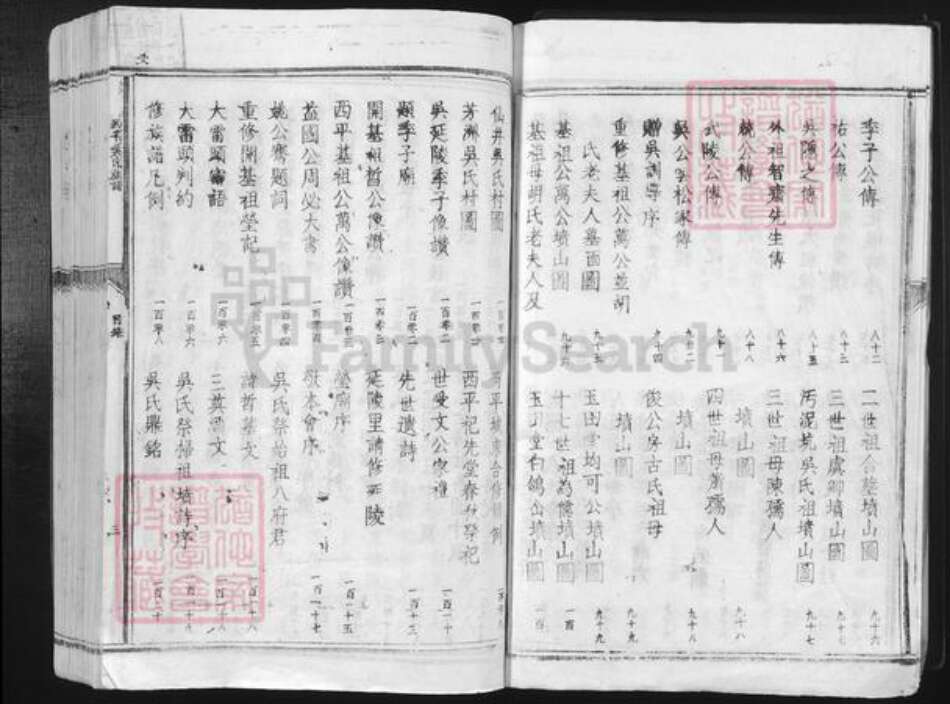 季子公傳 八十二
祐公傳 八十三
吳隱之傳 八十五
外祖智齋先生傳 八十六
兢公傳 八十八
武陵公傳 九十一
吳公孚松家傳 九十二
贈吳訓導序 九十四
重修基祖公萬公並胡
氏老夫人墓面圖 九十五
基祖公萬公墳山圖 九十六
基祖母胡氏老夫人及
二世祖合塋墳山圖 九十六
三世祖虞卿墳山圖 九十七
污泥坑吳氏祖墳山圖 九十七
三世祖母陳孺人
墳山圖 九十八
四世祖母蕭孺人
墳山圖 九十八
俊公房古氏祖母
墳山圖 九十九
玉田堂均可公墳山圖 九十九
十七世祖為億墳山圖 一百
玉丁堂白鴿山墳山圖 一百
仙井吳氏村圖
芳洲吳氏村圖
吳延陵季子像讚
題季子廟 一百零二
開基祖哲公像讚 一百零三
西平基祖公萬公像讚 一百零三
益國公周必大書 一百零四
姚公騫題詞 一百零四
重修開基祖塋記 一百零五
大雷頭寓語 一百零六
大雷頭判約 一百零六
修族譜凡例 一百零八
西平祀先堂春秋祭祀
世受文公家禮 一百一十
先世遺詩 一百十三
延陵里請修延陵
塋廟序 一百一十五
敬本會序 一百一十七
吳氏祭始祖八府君
諱哲墓文 一百一十八
三英酒文 一百一十八
吳氏祭掃祖墳詩序 一百一十八
吳氏鼎銘 一百二十
目錄
三
FamilySearch